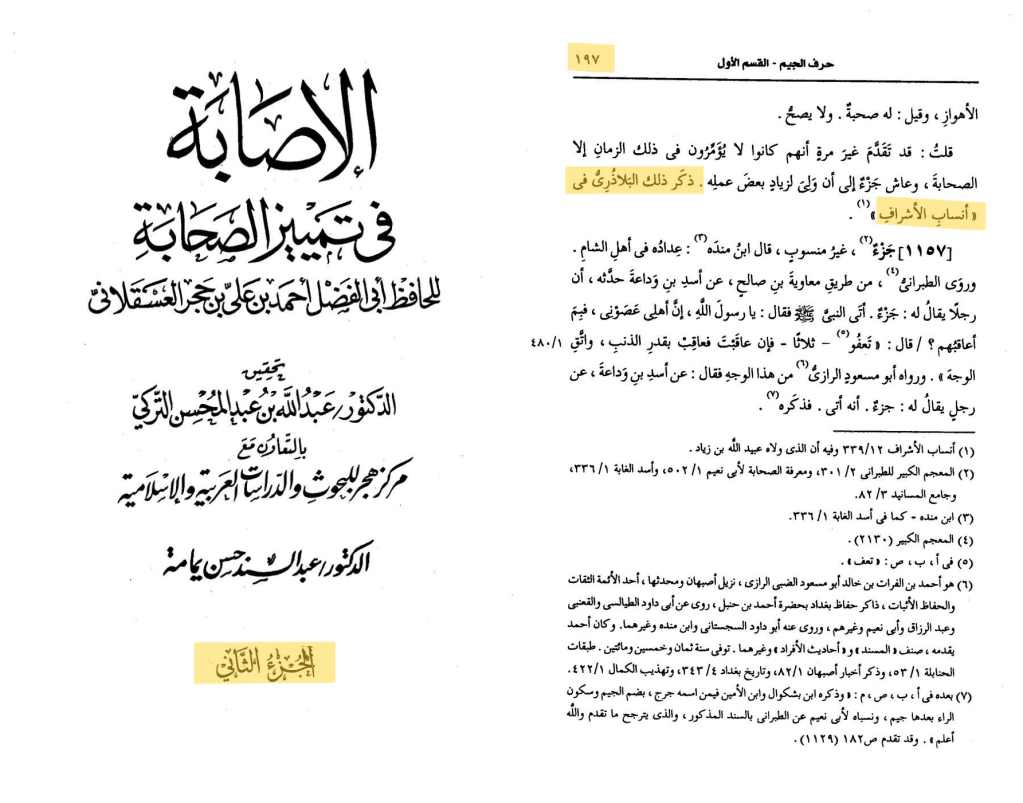 الإصابة
في تمييز الصحابة
للحافظ أبي الفضل أحمد بن علي بن حجر العسقلاني
تحقيق
الدكتور/ عبد الله بن عبد المحسن التركي
بالتعاون مع
مركز هجر للبحوث والدراسات العربية والإسلامية
الدكتور/ عبد السند حسن يمامة
الجزء الثاني
حرف الجيم - القسم الأول ١٩٧
الأهوازِ ، وقيل : له صحبةٌ . ولا يصحُّ .
قلتُ : قد تَقَدَّمَ غيرَ مرةٍ أنهم كانوا لا يُؤَمِّرُون فى ذلك الزمانِ إلا
الصحابةَ ، وعاش جَزْءٌ إلى أن وَلِىَ لزيادٍ بعضَ عملِه . ذكَر ذلك البَلاذُرِىُّ فى
« أنسابِ الأشرافِ »(١) .
[١١٥٧] جَزْءٌ(٢) ، غيرُ منسوبٍ ، قال ابنُ منده(٣) : عِدادُه فى أهلِ الشامِ .
وروَى الطبرانىُّ(٤) ، من طريقِ معاويةَ بنِ صالحٍ ، عن أسدِ بنِ وَداعةَ حدَّثه ، أن
رجلًا يقالُ له : جَزْءٌ . أتَى النبىَّ ﷺ فقال : يا رسولَ اللَّهِ ، إنَّ أهلِى عَصَوْنِى ، فبِمَ
أعاقبُهم ؟ / قال : « تَعفُو(٥) – ثلاثًا – فإن عاقَبْتَ فعاقِبْ بقدرِ الذنبِ ، واتَّقِ ٤٨٠/١
الوجهَ » . ورواه أبو مسعودٍ الرازىُّ(٦) من هذا الوجهِ فقال : عن أسدِ بنِ وَداعةَ ، عن
رجلٍ يقالُ له : جزءٌ . أنه أتى . فذكَره(٧) .
(١) أنساب الأشراف ٣٣٩/١٢ وفيه أن الذى ولاه عبيد اللَّه بن زياد .
(٢) المعجم الكبير للطبرانى ٢/ ٣٠١، ومعرفة الصحابة لأبى نعيم ١/ ٥٠٢، وأسد الغابة ١/ ٣٣٦،
وجامع المسانيد ٣/ ٨٢.
(٣) ابن منده - كما فى أسد الغابة ١/ ٣٣٦.
(٤) المعجم الكبير (٢١٣٠) .
(٥) فى أ ، ب ، ص : « تعف » .
(٦) هو أحمد بن الفرات بن خالد أبو مسعود الضبى الرازى ، نزيل أصبهان ومحدثها ، أحد الأئمة الثقات
والحفاظ الأثبات ، ذاكر حفاظ بغداد بحضرة أحمد بن حنبل ، روى عن أبى داود الطيالسى والقعنبى
وعبد الرزاق وأبى نعيم وغيرهم ، وروى عنه أبو داود السجستانى وابن منده وغيرهما. وكان أحمد
يقدمه ، صنف « المسند » و « أحاديث الأفراد » وغيرهما . توفى سنة ثمان وخمسين ومائتين . طبقات
الحنابلة ١/ ٥٣، وذكر أخبار أصبهان ٨٢/١، وتاريخ بغداد ٤/ ٣٤٣، وتهذيب الكمال ٤٢٢/١.
(٧) بعده فى أ ، ب ، ص ، م : « وذكره ابن بشكوال وابن الأمين فيمن اسمه جرج ، بضم الجيم وسكون
الراء بعدها جيم ، ونسباه لأبى نعيم عن الطبرانى بالسند المذكور ، والذى يترجح ما تقدم واللَّه
أعلم » . وقد تقدم ص١٨٢ (١١٢٩) .